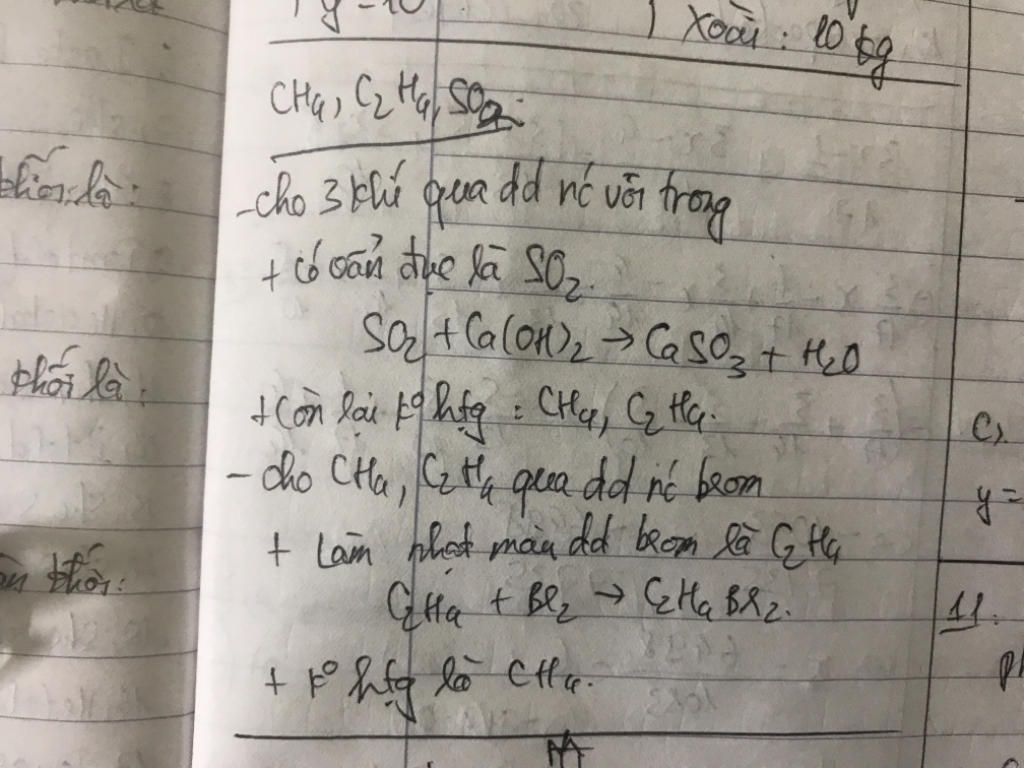 y = 10
Xoài : 10 kg
CH4, C2H4, SO2.
khối là:
- cho 3 khí qua dd nć vôi trong
+ có vẩn đục là SO2.
SO2 + Ca(OH)2 → CaSO3 + H2O
khối là:
+ Còn lại k° htg : CH4, C2H4.
C,
- cho CH4, C2H4 qua dd nć brom
y =
+ Làm nhạt màu dd brom là C2H4
khối:
C2H4 + Br2 → C2H4Br2.
11.
+ k° htg là CH4.